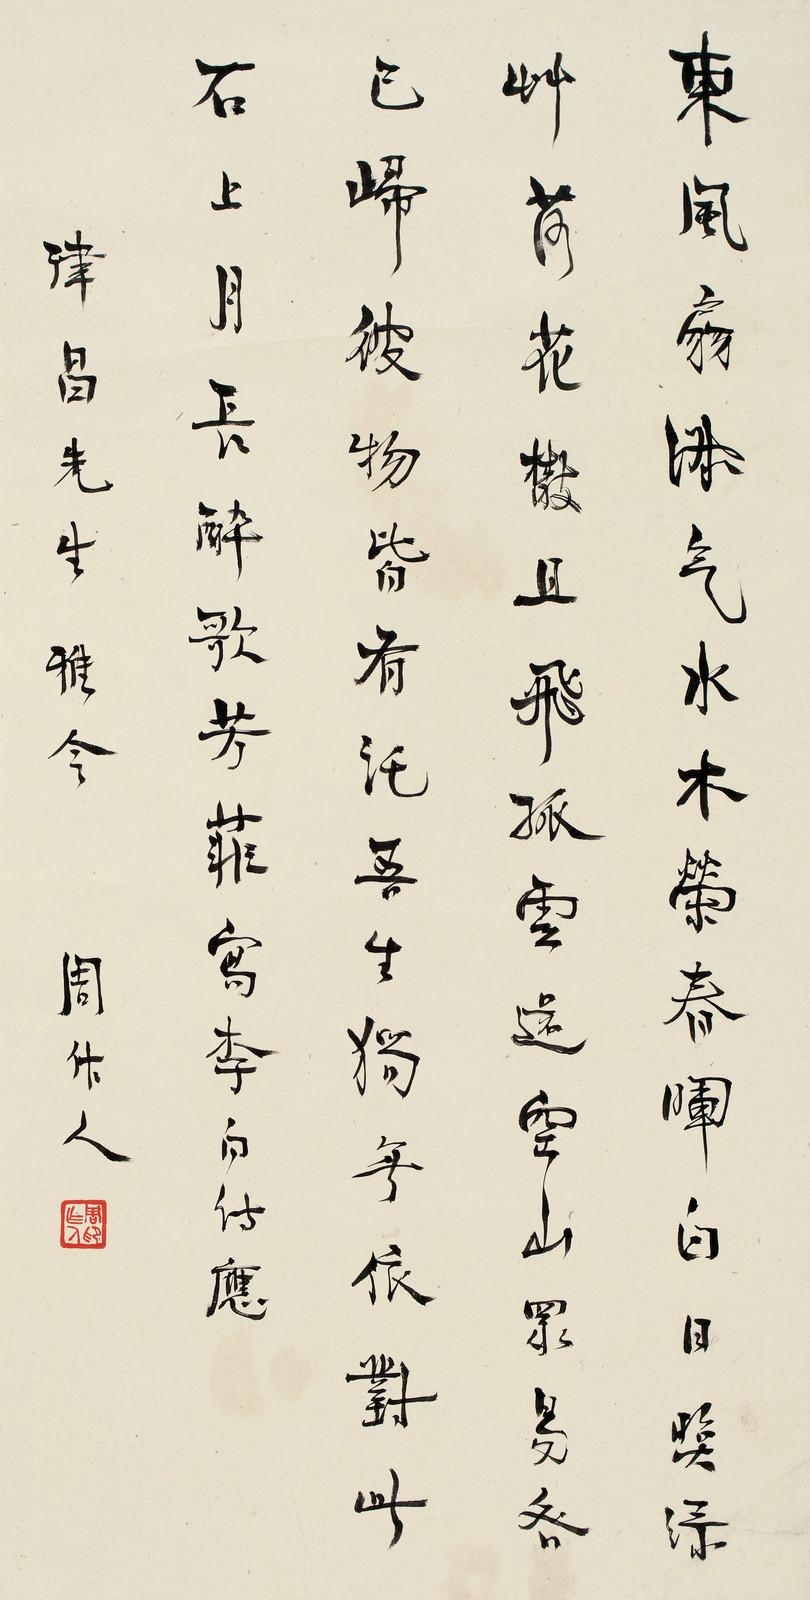 東風扇淑气水木榮春暉白日照綠
艸落花散且飛孤雲還空山眾鳥各
已歸彼物皆有託吾生獨無依對此
石上月長醉歌芳菲寫李白詩應
瑋昌先生雅令 周作人
周作人印